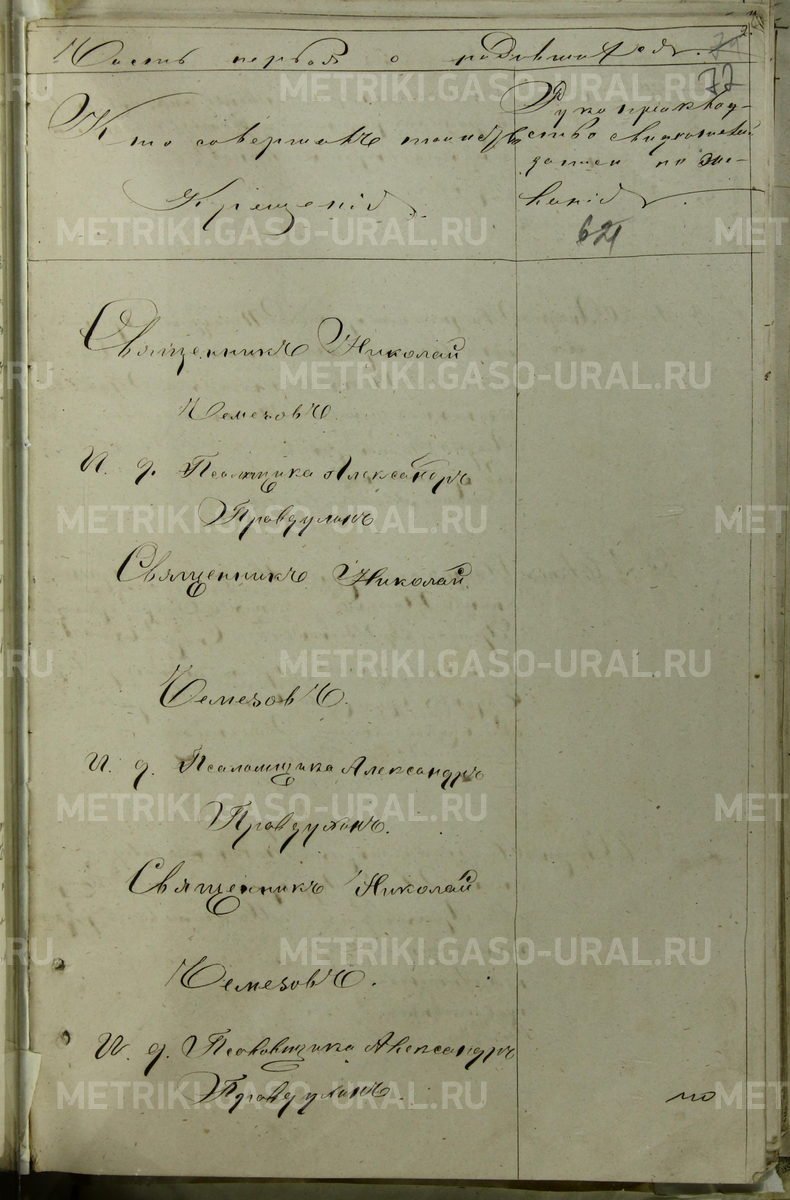 Часть первая о родившихся.
72
Кто совершалъ таинство
Крещенія.
Рукоприкладство
свидѣтелей
записи по же-
ланію.
Священникъ Николай
Чемезовъ.
И. д. Псаломщика Александръ
Правдухинъ
Священникъ Николай
Чемезовъ.
И. д. Псаломщика Александръ
Правдухинъ.
Священникъ Николай
Чемезовъ.
И. д. Псаломщика Александръ
Правдухинъ.
METRIKI.GASO-URAL.RU